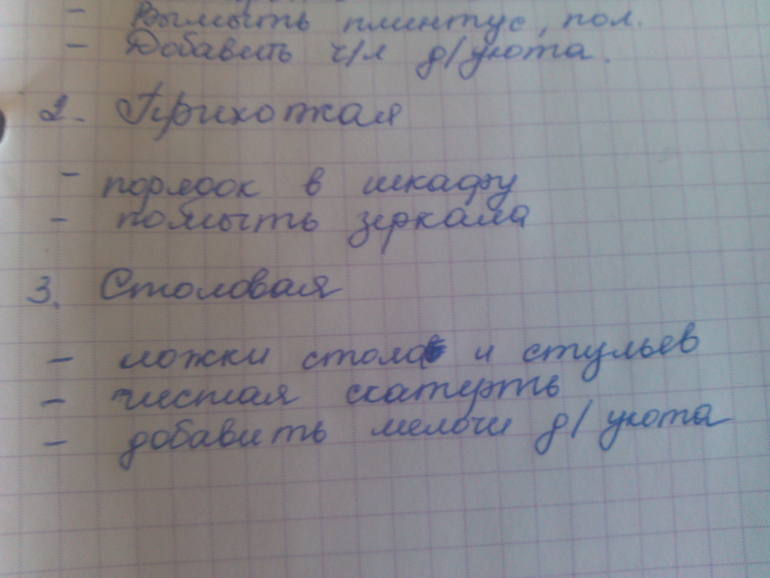 - Вымыть плинтус, пол.
- Добавить ч/л д/уюта.
2. Прихожая
- порядок в шкафу
- помыть зеркала
3. Столовая
- ножки стола и стульев
- чистая скатерть
- добавить мелочи д/уюта